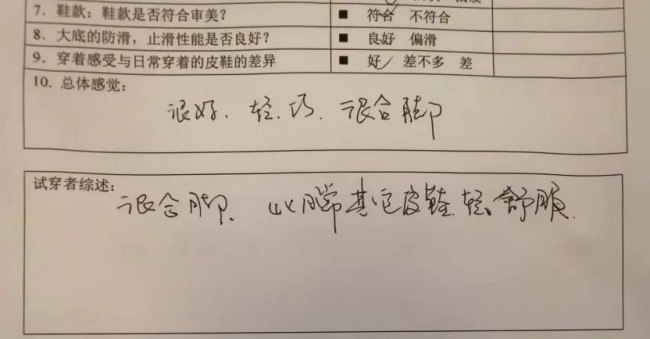 7. 鞋款:鞋款是否符合审美? ■ 符合 不符合
8. 大底的防滑,止滑性能是否良好? ■ 良好 偏滑
9. 穿着感受与日常穿着的皮鞋的差异 ■ 好 差不多 差
10. 总体感觉:
很好. 轻. 巧. 很合脚
试穿者综述:
很合脚. 其它皮鞋. 轻、舒服.